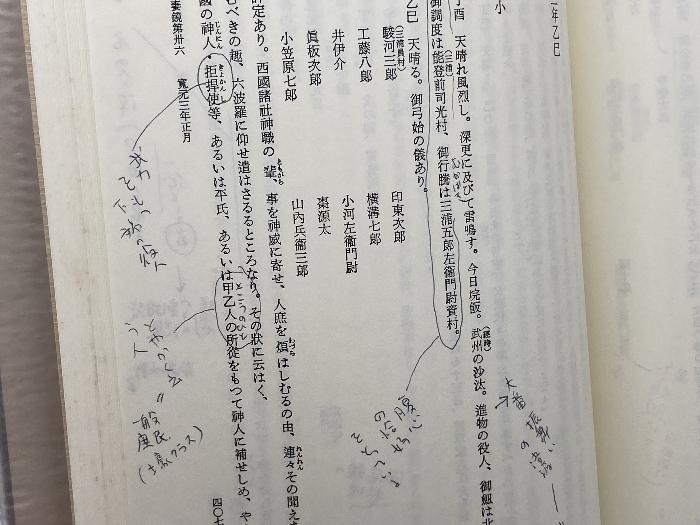 年乙巳
小
丁酉　天晴れ風烈し。深更に及びて雷鳴す。今日垸飯。武州の沙汰。進物の役人、御剱は北
御調度は能登前司光村、御行騰は三浦五郎左衞門尉資村。
乙巳　天晴る。御弓始の儀あり。
駿河三郎　印東次郎
工藤八郎　横溝七郎
井伊介　小河左衞門尉
眞板次郎　棗源太
小笠原七郎　山內兵衞三郎
評定あり。西國諸社神職の輩、事を神威に寄せ、人庶を煩はしむるの由、連々その聞え
べきの趣、六波羅に仰せ遣はさるるところなり。その狀に云はく、
國の神人・拒捍使等、あるいは平氏、あるいは甲乙人の所從をもつて神人に補せしめ、や
妻鏡第卅六　寬元三年正月
四〇七
(三浦)
むかばき
(經時)
(三浦員村)
ともがら
わづら
れんれん
じんにん
きよかんし
とこうのひと
大番
振舞い
の
腹心
の恰好
一般民
(壊クラス)
人